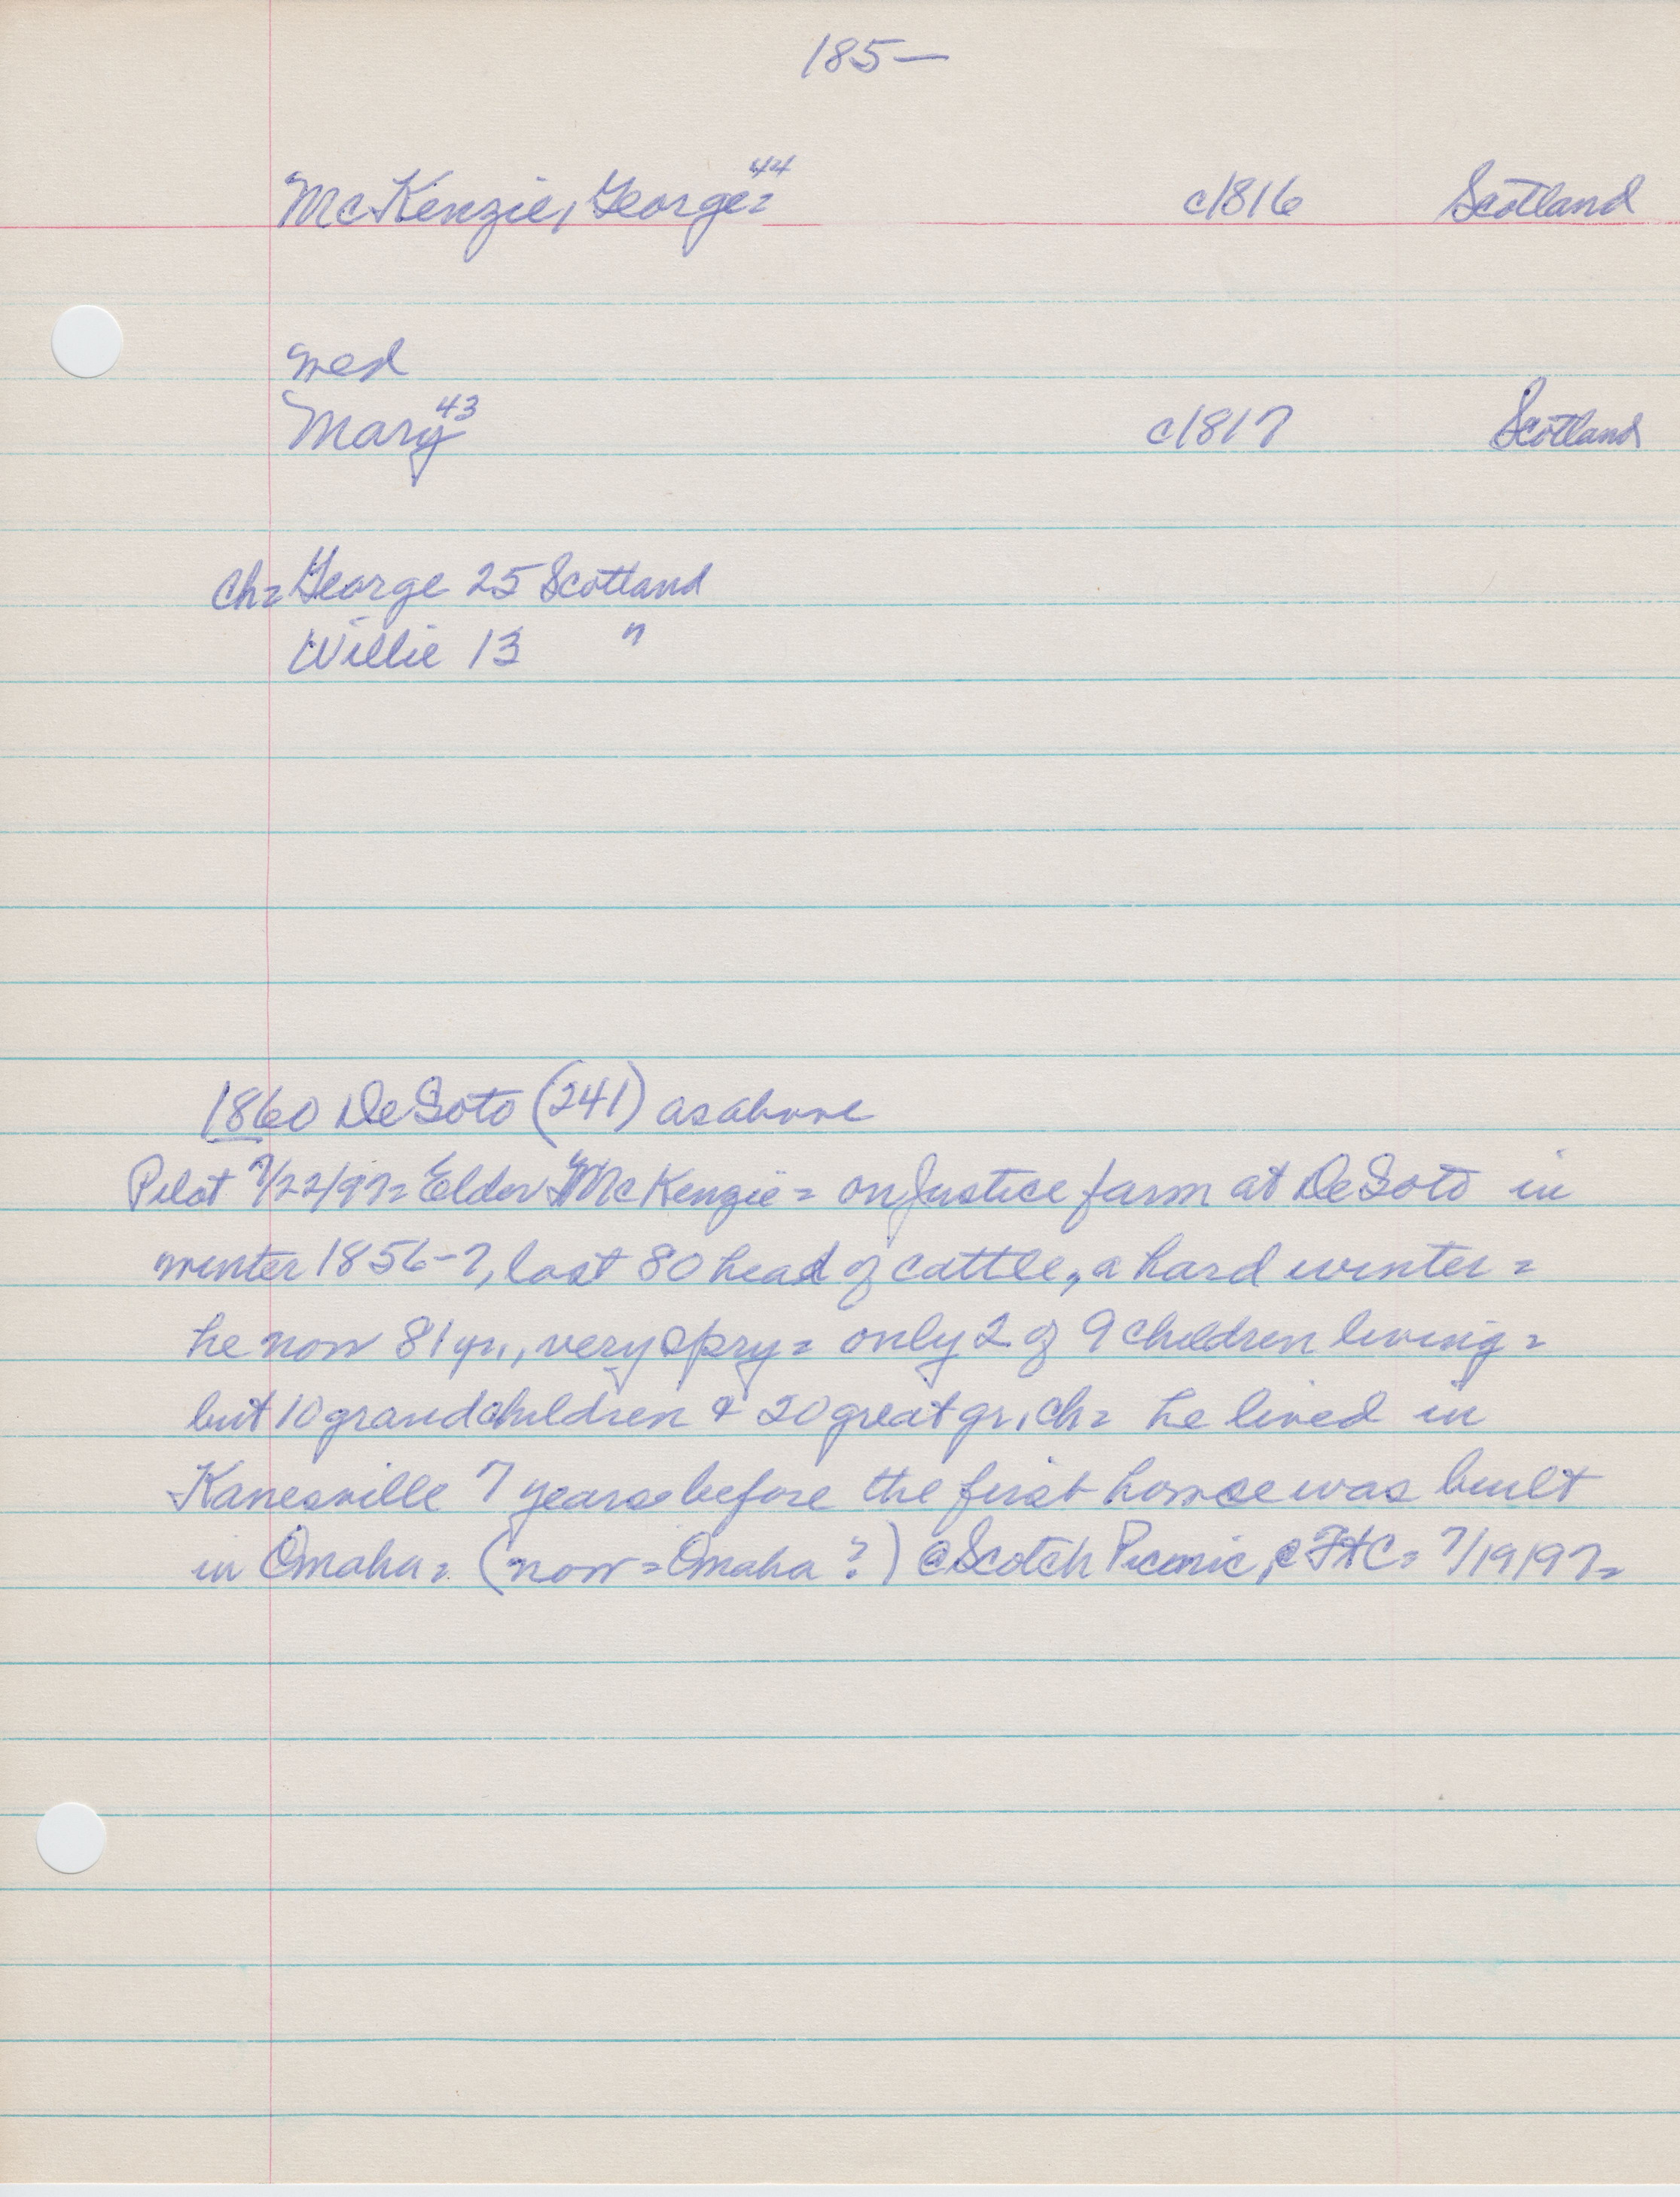 185—
McKenzie, George 44 = c1816 Scotland
med
Mary 43 c1817 Scotland
Ch = George 25 Scotland
Willie 13 "
1860 DeSoto (241) as above
Pilot 7/22/97 = Elder McKenzie = on Justice farm at DeSoto in
winter 1856-7, lost 80 head of cattle, a hard winter =
he now 81 yr., very spry = only 2 of 9 children living =
but 10 grandchildren & 20 great gr. ch = he lived in
Kanesville 7 years before the first house was built
in Omaha = (now = Omaha ?) @ Scotch Picnic, @ FtC = 7/19/97 =